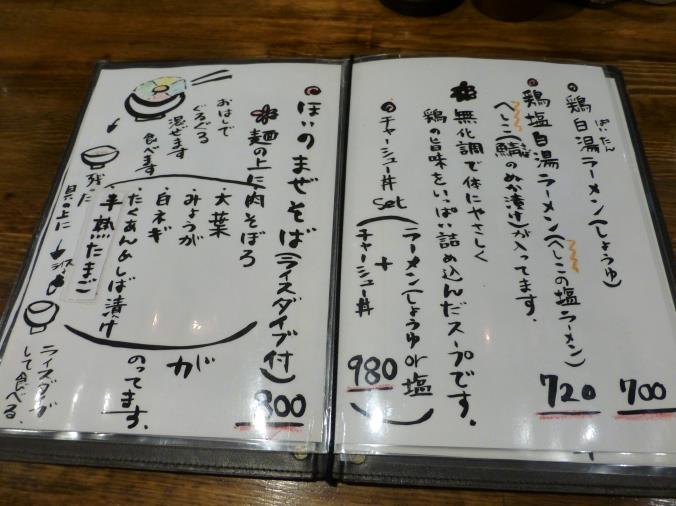 鶏白湯ラーメン(しょうゆ)
ぱいたん
700
鶏塩白湯ラーメン(へしこの塩ラーメン)
720
へしこ(鯖のぬか漬け)が入ってます。
無化調で体にやさしく
鶏の旨味をいっぱい詰め込んだスープです。
チャーシュー丼set
(ラーメン(しょうゆor塩)
+
チャーシュー丼)
980
ほいのまぜそば(ライスダイブ付)
800
麺の上に
・肉そぼろ
・大葉
・みょうが
・白ネギ
・たくあん&しば漬け
・半熟たまご
が
のってます。
おはしで
ぐるぐる
混ぜます
食べます
残った
具の上に
ライスを
ライスダイブ
して食べる。